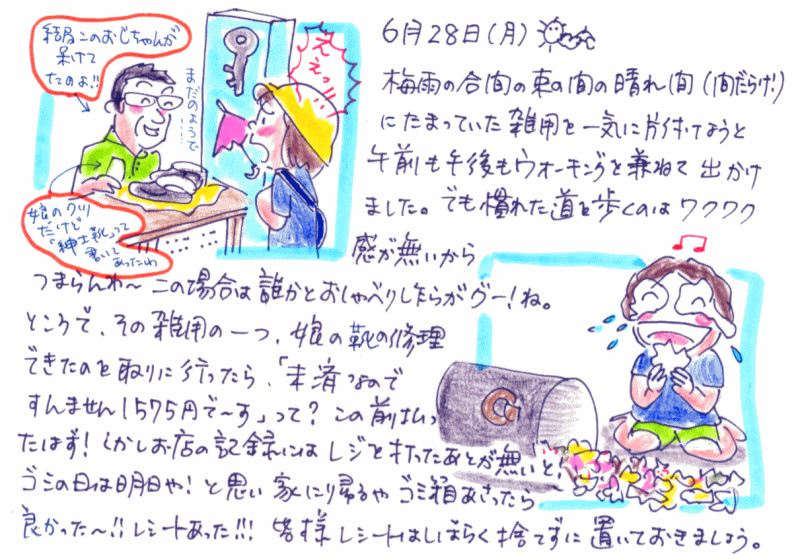 結局このおじちゃんが
呆けて
たのよ!!
まだのようで
……
ええっ!!
娘のクツ
だけど
「紳士靴」って
書いて
あったわ
6月28日(月)
梅雨の合間の束の間の晴れ間(間だらけ!)
にたまっていた雑用を一気に片付けようと
午前も午後もウオーキングを兼ねて出かけ
ました。でも慣れた道を歩くのはワクワク
感が無いから
つまらんわ〜この場合は誰かとおしゃべりしたらがグー!ね。
ところで、その雑用の一つ、娘の靴の修理
できたのを取りに行ったら、「未済なので
すんません1575円で〜す」って?この前払っ
たはず!しかしお店の記録にはレジを打ったあとが無いと!
ゴミの日は明日や!と思い家に帰るやゴミ箱あさったら
良かった〜!!レシートあった!!!皆様レシートはしばらく捨てずに置いておきましょう。